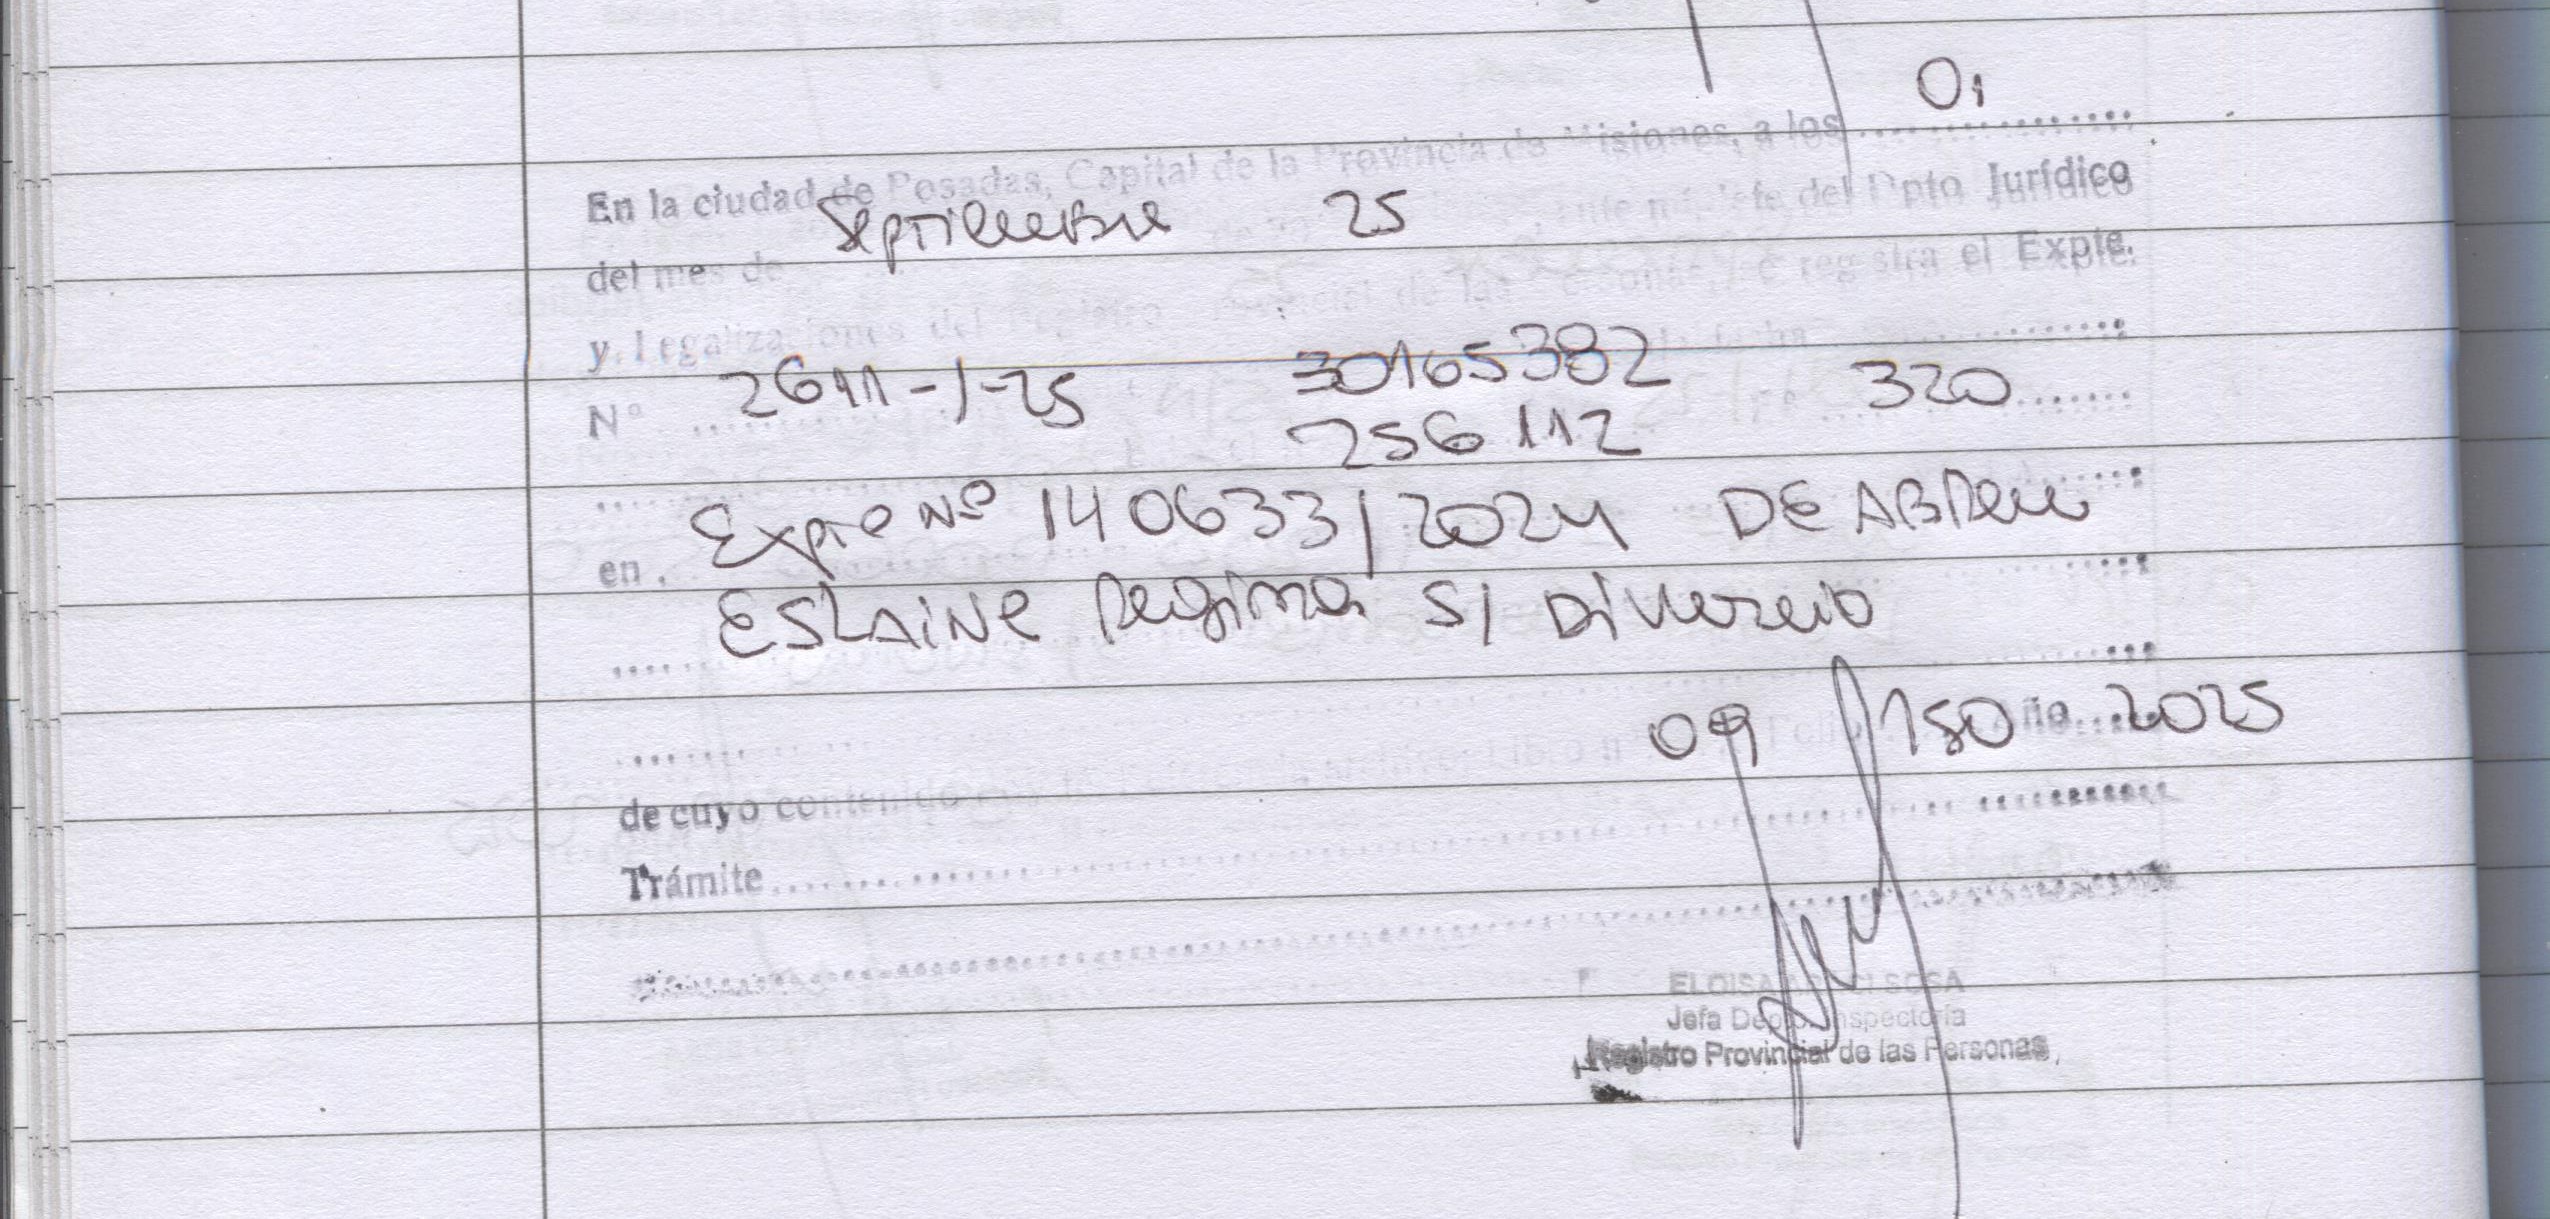 01
En la ciudad de Posadas, Capital de la Provincia de Misiones, a los
Septiembre 25
del mes de de 20 ante mi Jefe del Dpto Jurídico
y Legalizaciones del Registro Provincial de las Personas, se registra el Expte.
Nº 2611-J-25 30165382 320
256112
Expte Nº 140633/2024 DE ABREU
en
ESLAINE Regina S/ Divorcio
09 180 Año 2025
de cuyo contenido Libro nº Folio
Trámite
ELOISA SOSA
Jefa Depto. Inspectoría
Registro Provincial de las Personas